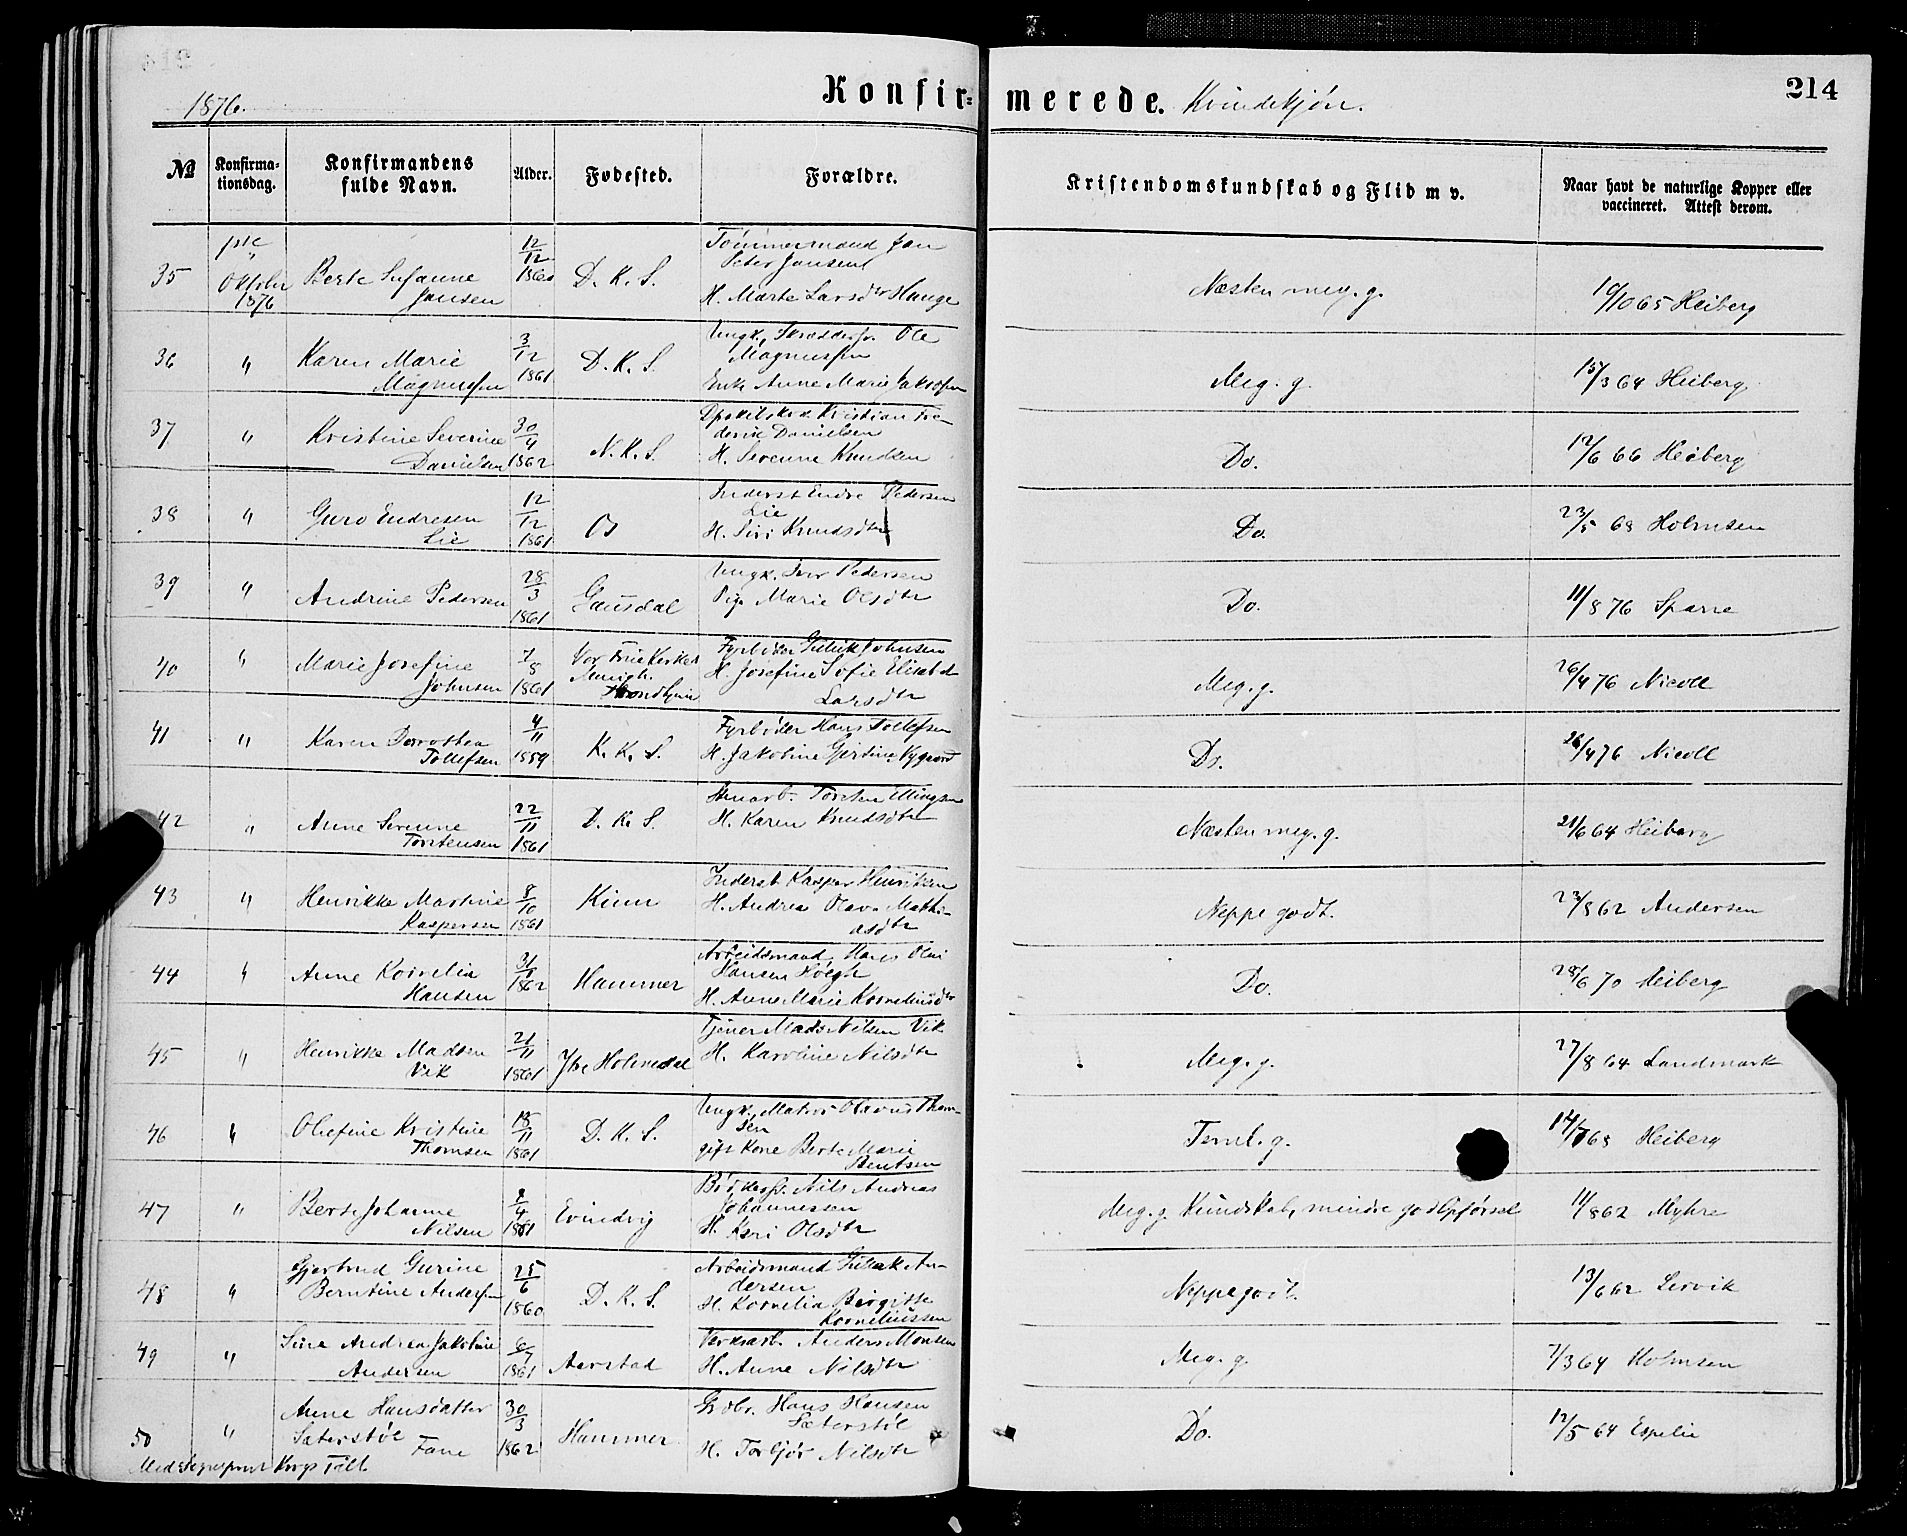 1876.
Konfirmerede. Kvindekjøn.
214
№ Konfirmationsdag. Konfirmandens fulde Navn. Alder. Fødested. Forældre. Kristendomskundskab og Flid m v. Naar havt de naturlige Kopper eller vaccineret. Attest derom.
35 Oktober 1876 Berte Susanne Jansen 12/12 1860 D. K. S. Tømmermand Jan Peter Jansen H. Marte Larsdtr Hauge Næsten meg. g. 10/10 65 Heiberg
36 " Karen Marie Magnussen 3/12 1861 D. K. S. Ungk. Ole Magnussen Enke Anne Marie Jakobsen Meg. g. 15/3 64 Heiberg
37 " Kristine Severine Danielsen 30/4 1862 N. K. S. Kristian Frederik Danielsen H. Severine Knudsen Do. 12/6 66 Heiberg
38 " Guro Endresen Lie 12/12 1861 Os Inderst Endre Pedersen Lie H. Siri Knudsdtr Do. 23/5 68 Holmsen
39 " Andrine Pedersen 28/3 1861 Gausdal Ungk. Iver Pedersen Pige Marie Olsdtr Do. 11/8 76 Sparre
40 " Marie Josefine Johnsen 7/8 1861 Vor Frue Kirkes Menigh. Trondhjem Fyrbøder Gullik Johnsen H. Josefine Sofie Elisabet Larsdtr Meg. g. 26/4 76 Nicoll
41 " Karen Dorothea Tollefsen 4/11 1859 K. K. S. Fyrbøder Hans Tollefsen H. Jakobine Gjertine Nygaard Do. 26/4 76 Nicoll
42 " Anne Serine Torstensen 22/11 1861 D. K. S. Stenarb. Torsten Ellingsen H. Karen Knudsdtr Næsten meg. g. 21/6 64 Heiberg
43 " Henrikke Martine Kaspersen 8/10 1861 Kinn Inderst Kasper Henriksen H. Andrea Olava Mathiasdtr Neppe godt. 23/8 62 Andersen
44 " Anne Kornelia Hansen 31/8 1862 Hammer Arbeidsmand Hans Olai Hansen Høegh H. Anne Marie Korneliusdtr Do. 28/6 70 Heiberg
45 " Henrikke Madsen Vik 21/11 1861 Ytre Holmedal Tjener Mads Nilsen Vik H. Karoline Nilsdtr Meg. g. 27/8 64 Landmark
46 " Oliefine Kristine Thomsen 18/11 1861 D. K. S. Ungk. Matros Olavus Thomsen gift Kone Berte Marie Bentsen Teml. g. 14/7 68 Heiberg
47 " Berte Johanne Nilsen 9/4 1861 Evindvig Bødkersv. Nils Andreas Johannessen H. Kari Olsdtr Meg. g. Kundskab, mindre god Opførsel 11/8 62 Myhre
48 " Gjertrud Gurine Berntine Andersen 25/6 1860 D. K. S. Arbeidsmand Gullak Andersen H. Kornelia Birgitte Korneliussen Neppe godt. 13/6 62 Lervik
49 " Sine Andrea Jakobine Andersen 6/7 1861 Aarstad Verksarb. Anders Monsen H. Anne Nilsdtr Meg. g. 7/3 64 Holmsen
50 " Anne Hansdatter Sæterstøl Fane 30/3 1862 Hammer Gbr. Hans Hansen Sæterstøl H. Torbjør Nilsdtr Do. 12/5 64 Espelie